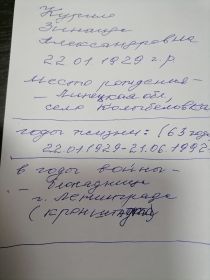 Курило
Зинаида
Александровна
22 01 1929 г.р.
Место рождения -
- Винецкая обл,
село Колыбеловка
годы жизни: (63 года
22.01.1929-21.06 1992
в годы войны -
- блокадница
г. Ленинграда
(Кронштадт)